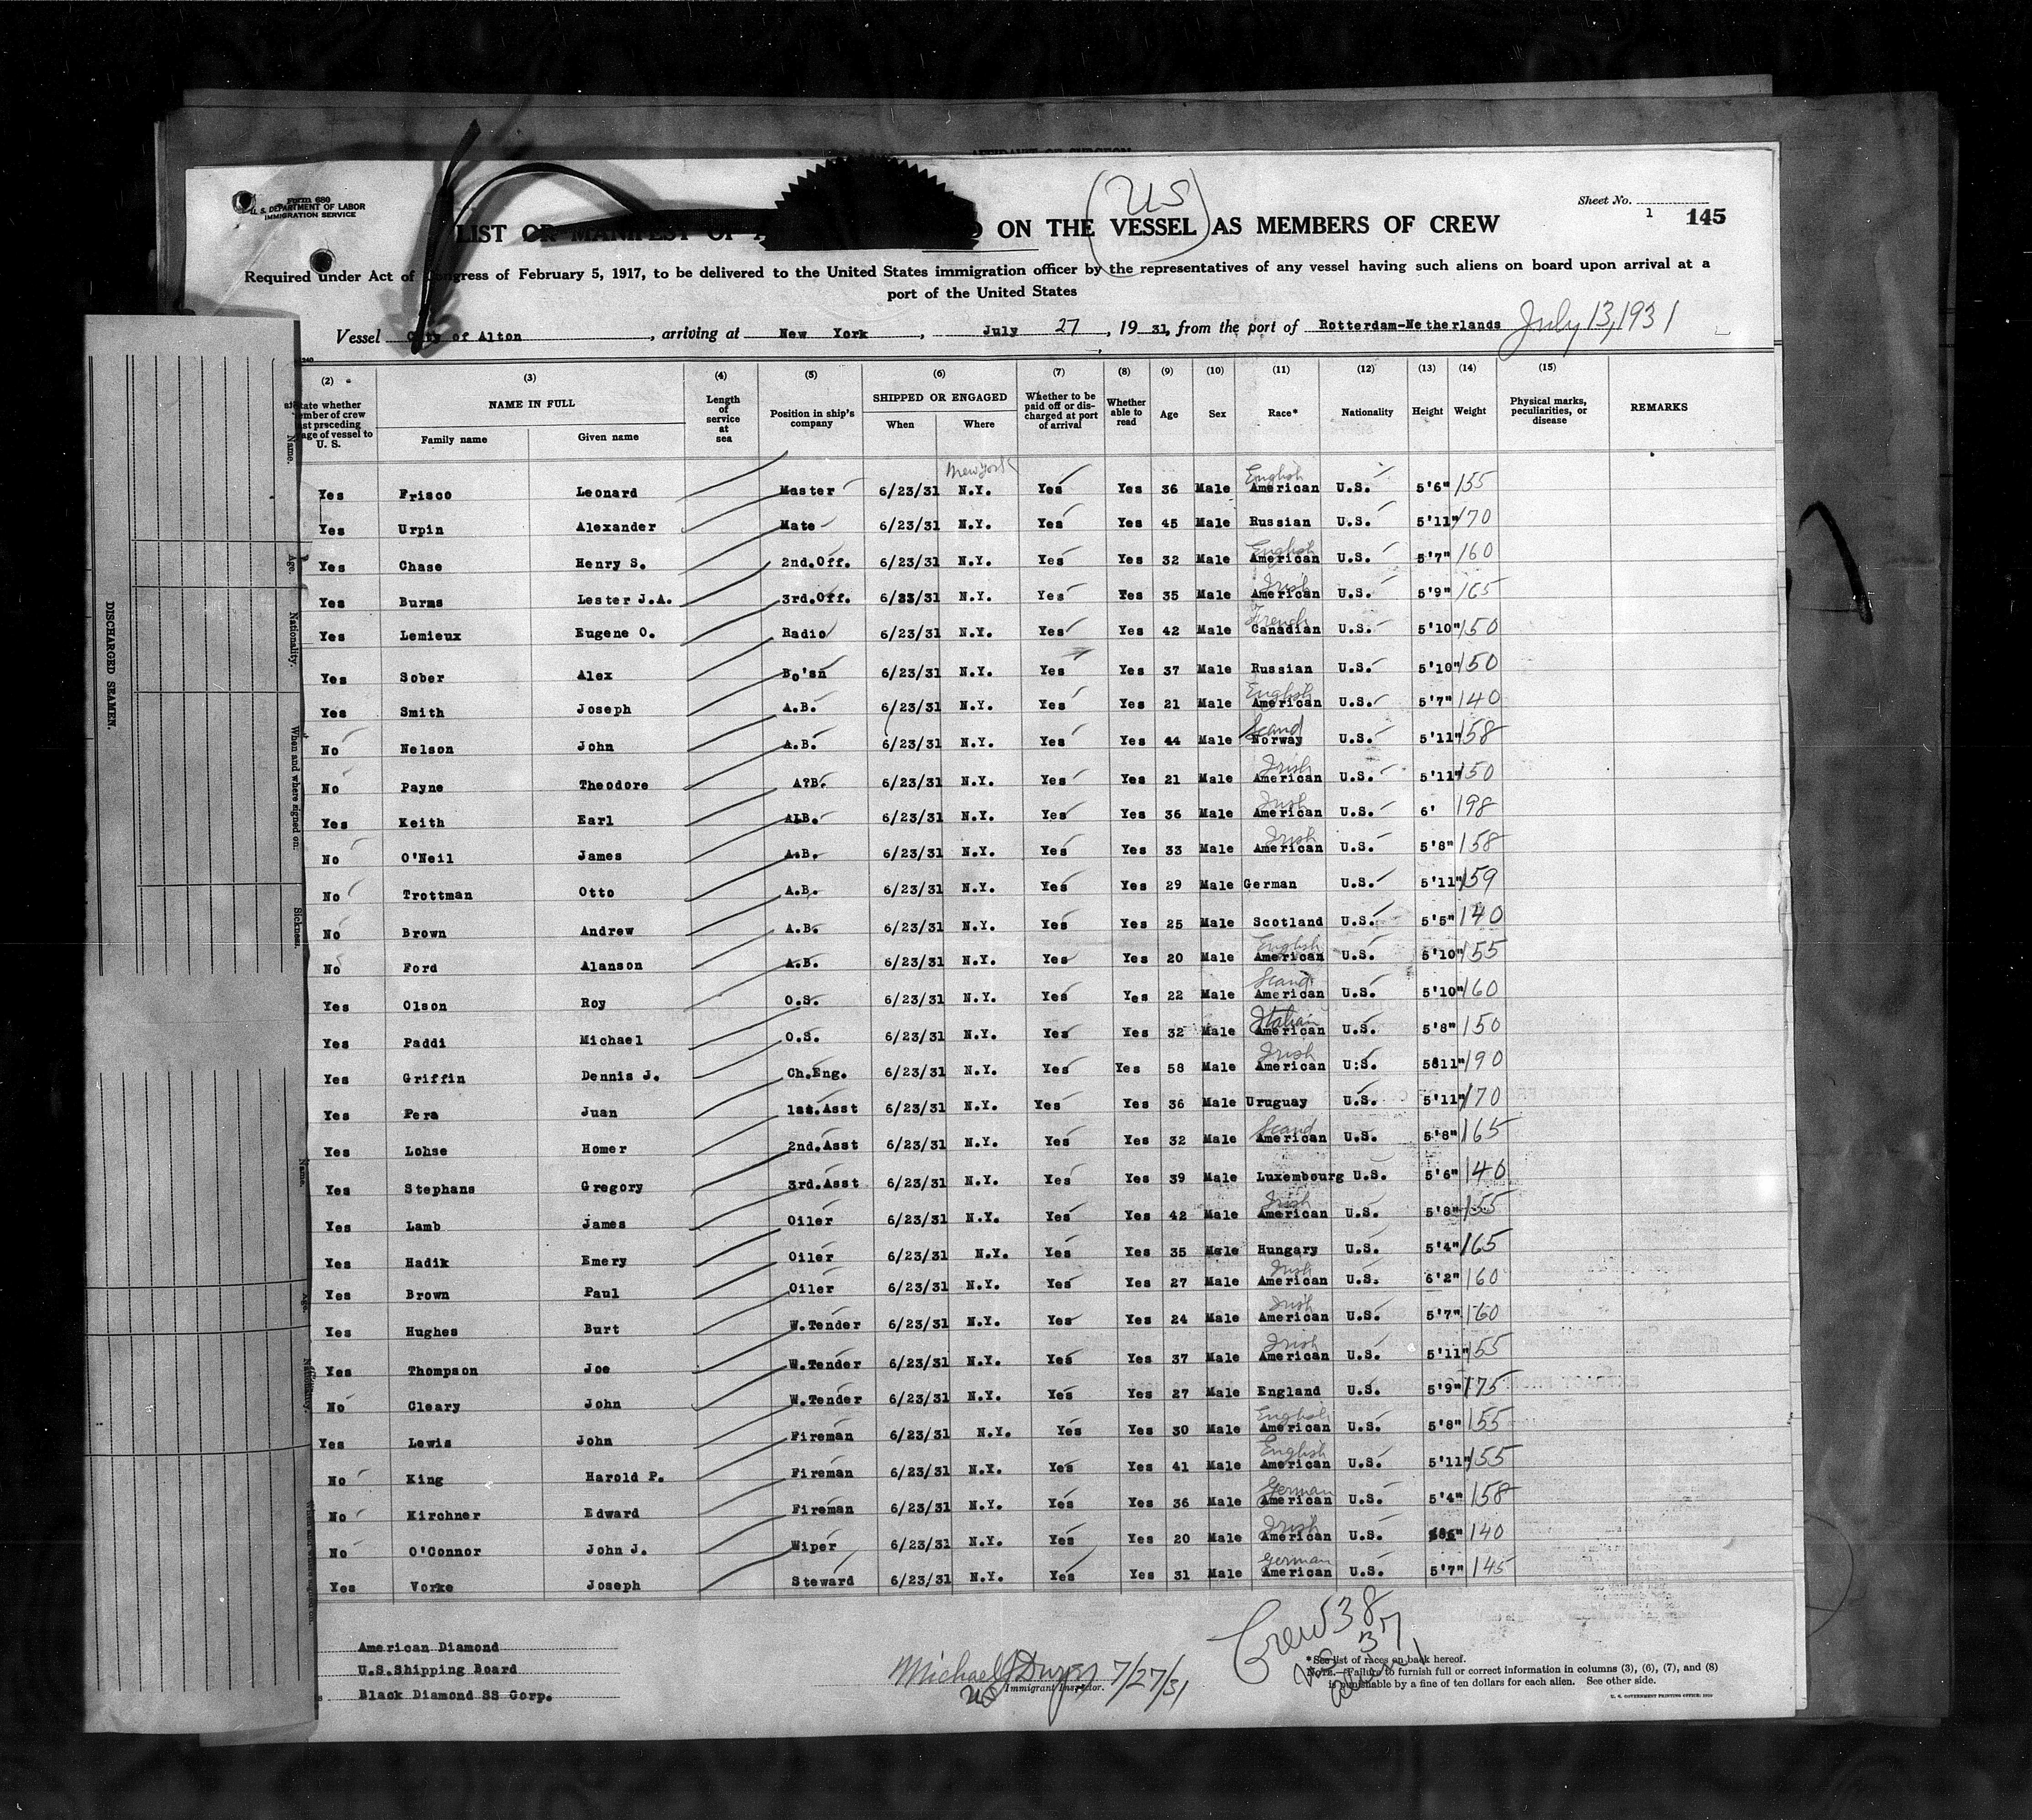 AFFIDAVIT OF SURGEON
Form 680
U. S. DEPARTMENT OF LABOR
IMMIGRATION SERVICE
(US)
Sheet No. 1 145
LIST OR MANIFEST OF ON THE VESSEL AS MEMBERS OF CREW
Required under Act of Congress of February 5, 1917, to be delivered to the United States immigration officer by the representatives of any vessel having such aliens on board upon arrival at a
port of the United States
Vessel City of Alton, arriving at New York, July 27, 19 31, from the port of Rotterdam-Netherlands July 13, 1931
(2) (3) (4) (5) (6) (7) (8) (9) (10) (11) (12) (13) (14) (15)
State whether member of crew last preceding voyage of vessel to U. S. NAME IN FULL Family name Given name Length of service at sea Position in ship's company SHIPPED OR ENGAGED When Where Whether to be paid off or discharged at port of arrival Whether able to read Age Sex Race* Nationality Height Weight Physical marks, peculiarities, or disease REMARKS
New York English
Yes Frisco Leonard Master 6/23/31 N.Y. Yes Yes 36 Male American U.S. 5'6" 155
Yes Urpin Alexander Mate 6/23/31 N.Y. Yes Yes 45 Male Russian U.S. 5'11" 170
English
Yes Chase Henry S. 2nd.Off. 6/23/31 N.Y. Yes Yes 32 Male American U.S. 5'7" 160
Irish
Yes Burns Lester J.A. 3rd.Off. 6/23/31 N.Y. Yes Yes 35 Male American U.S. 5'9" 165
French
Yes Lemieux Eugene O. Radio 6/23/31 N.Y. Yes Yes 42 Male Canadian U.S. 5'10" 150
Yes Sober Alex Bo'sn 6/23/31 N.Y. Yes Yes 37 Male Russian U.S. 5'10" 150
English
Yes Smith Joseph A.B. 6/23/31 N.Y. Yes Yes 21 Male American U.S. 5'7" 140
Scand
No Nelson John A.B. 6/23/31 N.Y. Yes Yes 44 Male Norway U.S. 5'11" 158
Irish
No Payne Theodore A?B. 6/23/31 N.Y. Yes Yes 21 Male American U.S. 5'11" 150
Irish
Yes Keith Earl A1B. 6/23/31 N.Y. Yes Yes 36 Male American U.S. 6' 198
Irish
No O'Neil James A.B. 6/23/31 N.Y. Yes Yes 33 Male American U.S. 5'8" 158
No Trottman Otto A.B. 6/23/31 N.Y. Yes Yes 29 Male German U.S. 5'11" 159
No Brown Andrew A.B. 6/23/31 N.Y. Yes Yes 25 Male Scotland U.S. 5'5" 140
English
No Ford Alanson A.B. 6/23/31 N.Y. Yes Yes 20 Male American U.S. 5'10" 155
Scand
Yes Olson Roy O.S. 6/23/31 N.Y. Yes Yes 22 Male American U.S. 5'10" 160
Italian
Yes Paddi Michael O.S. 6/23/31 N.Y. Yes Yes 32 Male American U.S. 5'8" 150
Irish
Yes Griffin Dennis J. Ch.Eng. 6/23/31 N.Y. Yes Yes 58 Male American U:S. 5811" 190
Yes Pera Juan 1st.Asst 6/23/31 N.Y. Yes Yes 36 Male Uruguay U.S. 5'11" 170
Scand
Yes Lohse Homer 2nd.Asst 6/23/31 N.Y. Yes Yes 32 Male American U.S. 5'8" 165
Yes Stephans Gregory 3rd.Asst 6/23/31 N.Y. Yes Yes 39 Male Luxembourg U.S. 5'6" 140
Irish
Yes Lamb James Oiler 6/23/31 N.Y. Yes Yes 42 Male American U.S. 5'8" 155
Yes Hadik Emery Oiler 6/23/31 N.Y. Yes Yes 35 Male Hungary U.S. 5'4" 165
Irish
Yes Brown Paul Oiler 6/23/31 N.Y. Yes Yes 27 Male American U.S. 6'2" 160
Irish
Yes Hughes Burt W.Tender 6/23/31 N.Y. Yes Yes 24 Male American U.S. 5'7" 160
Irish
Yes Thompson Joe W.Tender 6/23/31 N.Y. Yes Yes 37 Male American U.S. 5'11" 155
No Cleary John W.Tender 6/23/31 N.Y. Yes Yes 27 Male England U.S. 5'9" 175
English
Yes Lewis John Fireman 6/23/31 N.Y. Yes Yes 30 Male American U.S. 5'8" 155
English
No King Harold P. Fireman 6/23/31 N.Y. Yes Yes 41 Male American U.S. 5'11" 155
German
No Kirchner Edward Fireman 6/23/31 N.Y. Yes Yes 36 Male American U.S. 5'4" 158
Irish
No O'Connor John J. Wiper 6/23/31 N.Y. Yes Yes 20 Male American U.S. 140
German
Yes Vorke Joseph Steward 6/23/31 N.Y. Yes Yes 31 Male American U.S. 5'7" 145
American Diamond
U.S.Shipping Board
Black Diamond SS Corp.
Michael J 7/27/31
Immigrant Inspector.
Crew 38
US 37
alien 1
*See list of races on back hereof.
NOTE.—Failure to furnish full or correct information in columns (3), (6), (7), and (8)
is punishable by a fine of ten dollars for each alien. See other side.
U. S. GOVERNMENT PRINTING OFFICE: 1930
DISCHARGED SEAMEN.
Name.
Age.
Nationality.
When and where signed on.
Sickness.
Name.
Age.
Nationality.